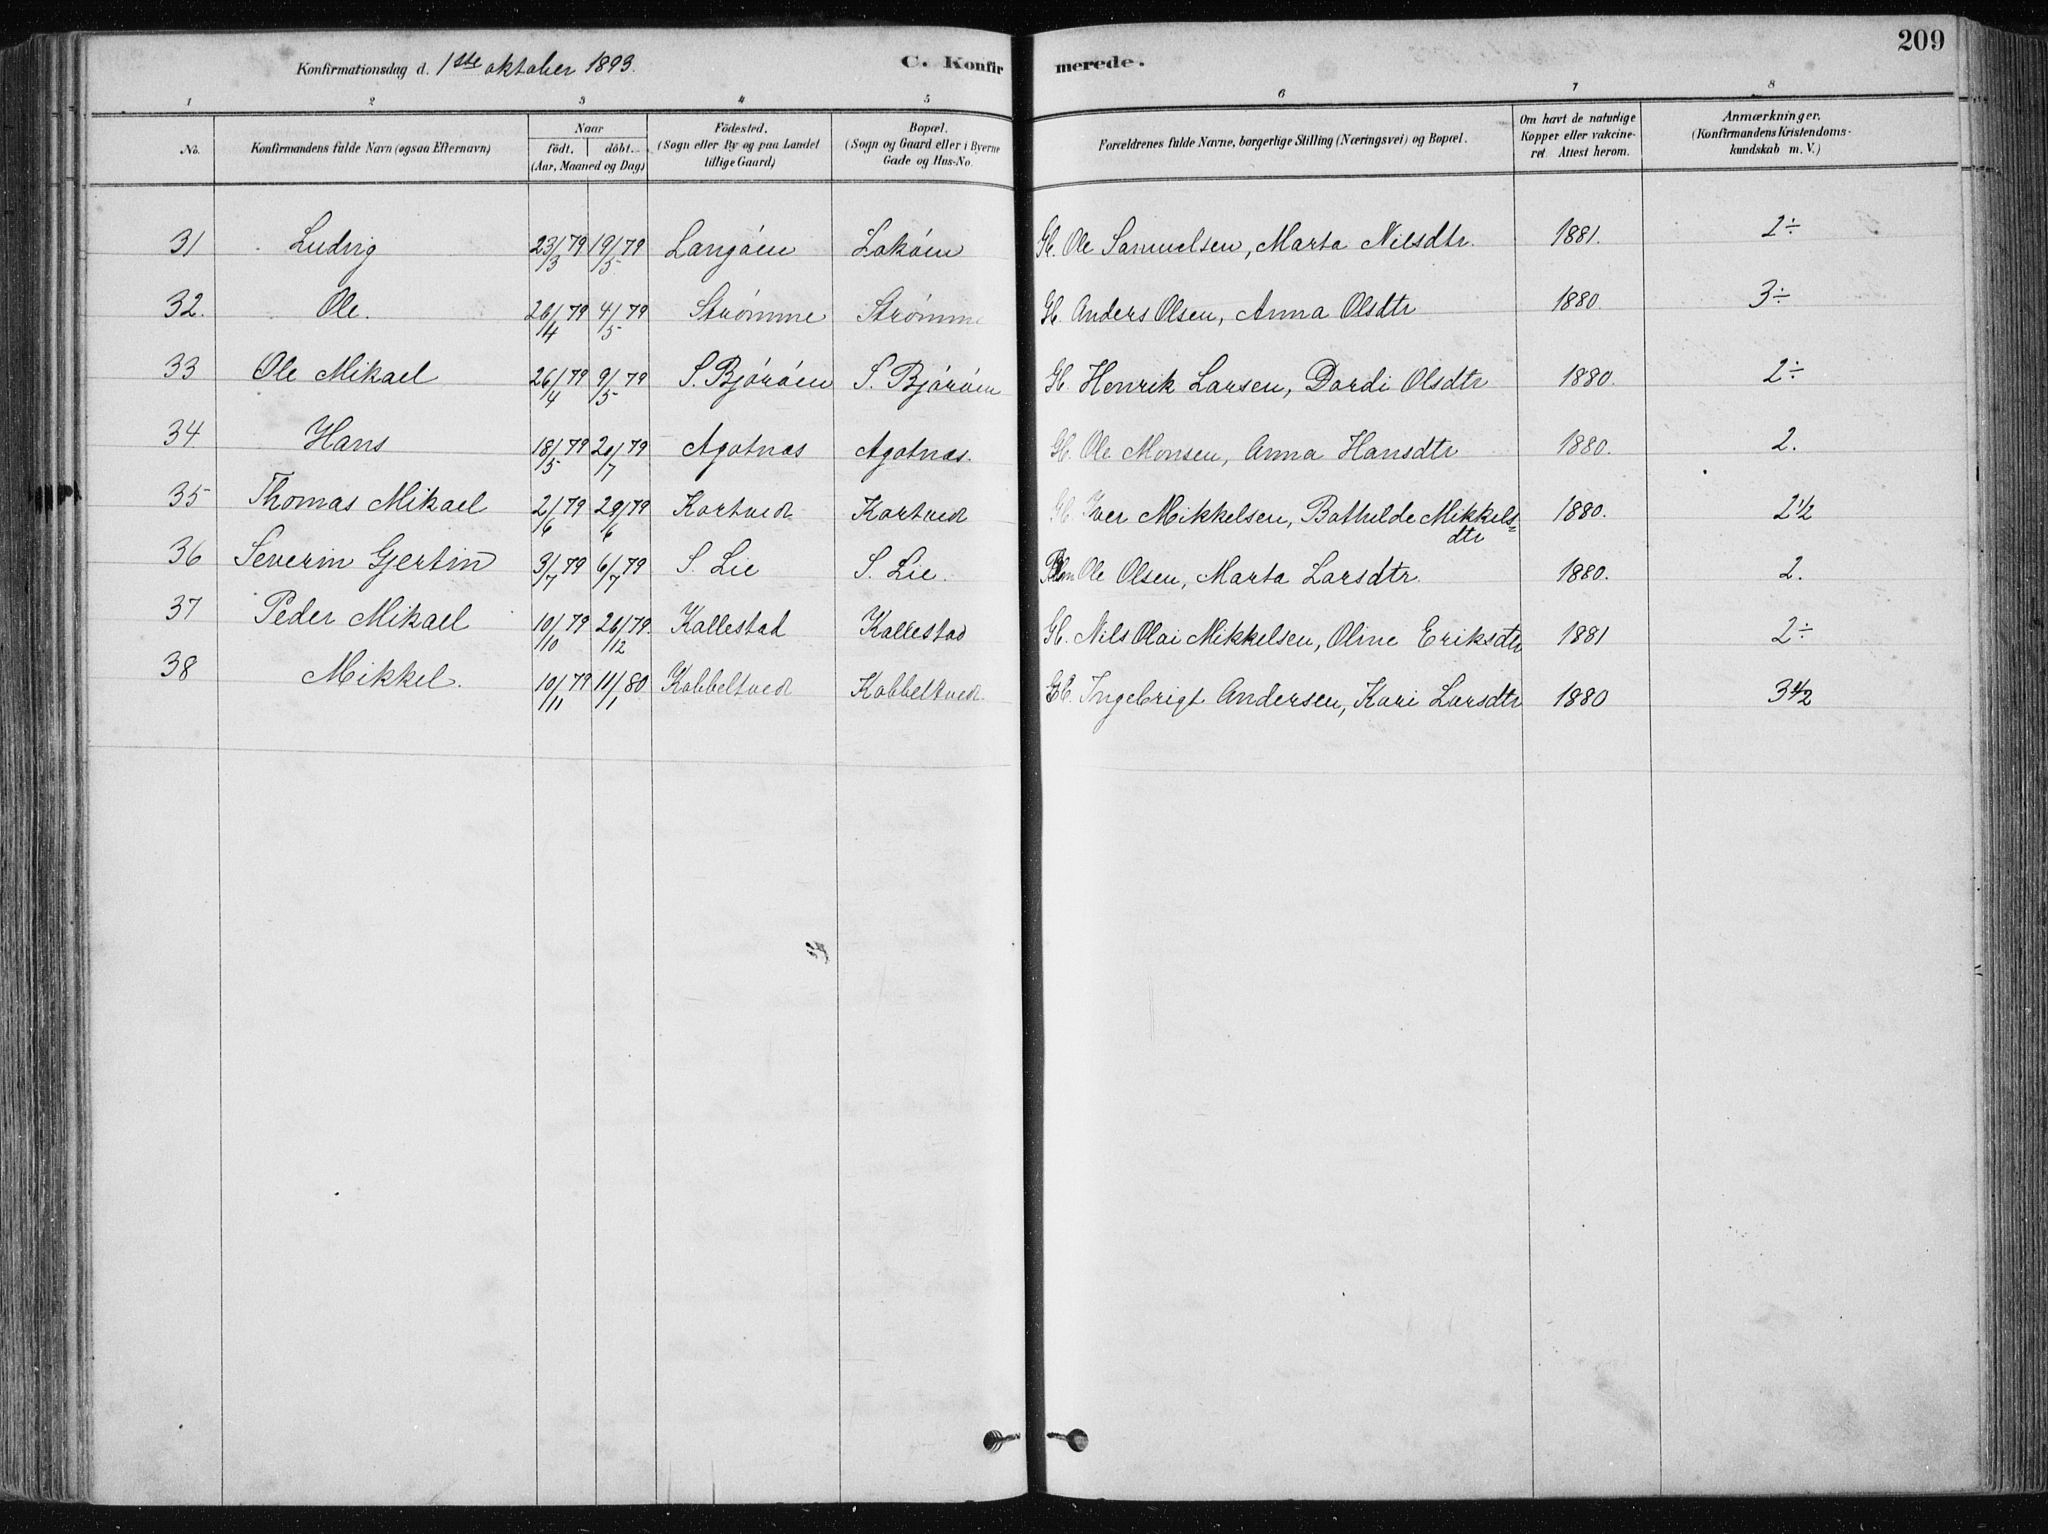 209
Konfirmationsdag d. 1ste oktober 1893.
C. Konfirmerede.
1 2 3 4 5 6 7 8
No. Konfirmandens fulde Navn (ogsaa Efternavn) Naar født. døbt. (Aar, Maaned og Dag) Fødested. (Sogn eller By og paa Landet tillige Gaard) Bopæl. (Sogn og Gaard eller i Byerne Gade og Hus-No. Forældrenes fulde Navne, borgerlige Stilling (Næringsvei) og Bopæl. Om havt de naturlige Kopper eller vakcineret. Attest herom. Anmærkninger. (Konfirmandens Kristendomskundskab m. V.)
31 Ludvig 23/3 79 19/5 79 Langøen Lokøen G. Ole Samuelsen, Marta Nilsdtr. 1881. 2÷
32. Ole. 26/4 79 4/5 79 Strømme Strømme G. Anders Olsen, Anna Olsdtr 1880. 3÷
33 Ole Mikael 26/4 79 9/5 79 S. Bjørøen S. Bjørøen G. Henrik Larsen, Dordi Olsdtr 1880. 2÷
34 Hans 18/5 79 20/7 79 Agotnæs Agotnæs. G. Ole Monsen, Anna Hansdtr 1880. 2.
35 Thomas Mikael 2/6 79 29/6 79 Kortvedt Kortvedt G. Iver Mikkelsen, Bothilde Mikkels=
dtr 1880. 2½
36 Severin Gjertin 3/7 79 6/7 79 S. Lie S. Lie. Ole Olsen, Marta Larsdtr. 1880. 2.
37 Peder Mikael 10/10 79 26/12 79. Kallestad Kallestad G. Nils Olai Mikkelsen, Oline Eriksdtr 1881 2÷
38 Mikkel. 10/11 79 11/1 80 Kobbeltvedt Kobbeltvedt. G. Ingebrigt Andersen, Kari Larsdtr 1880 3½